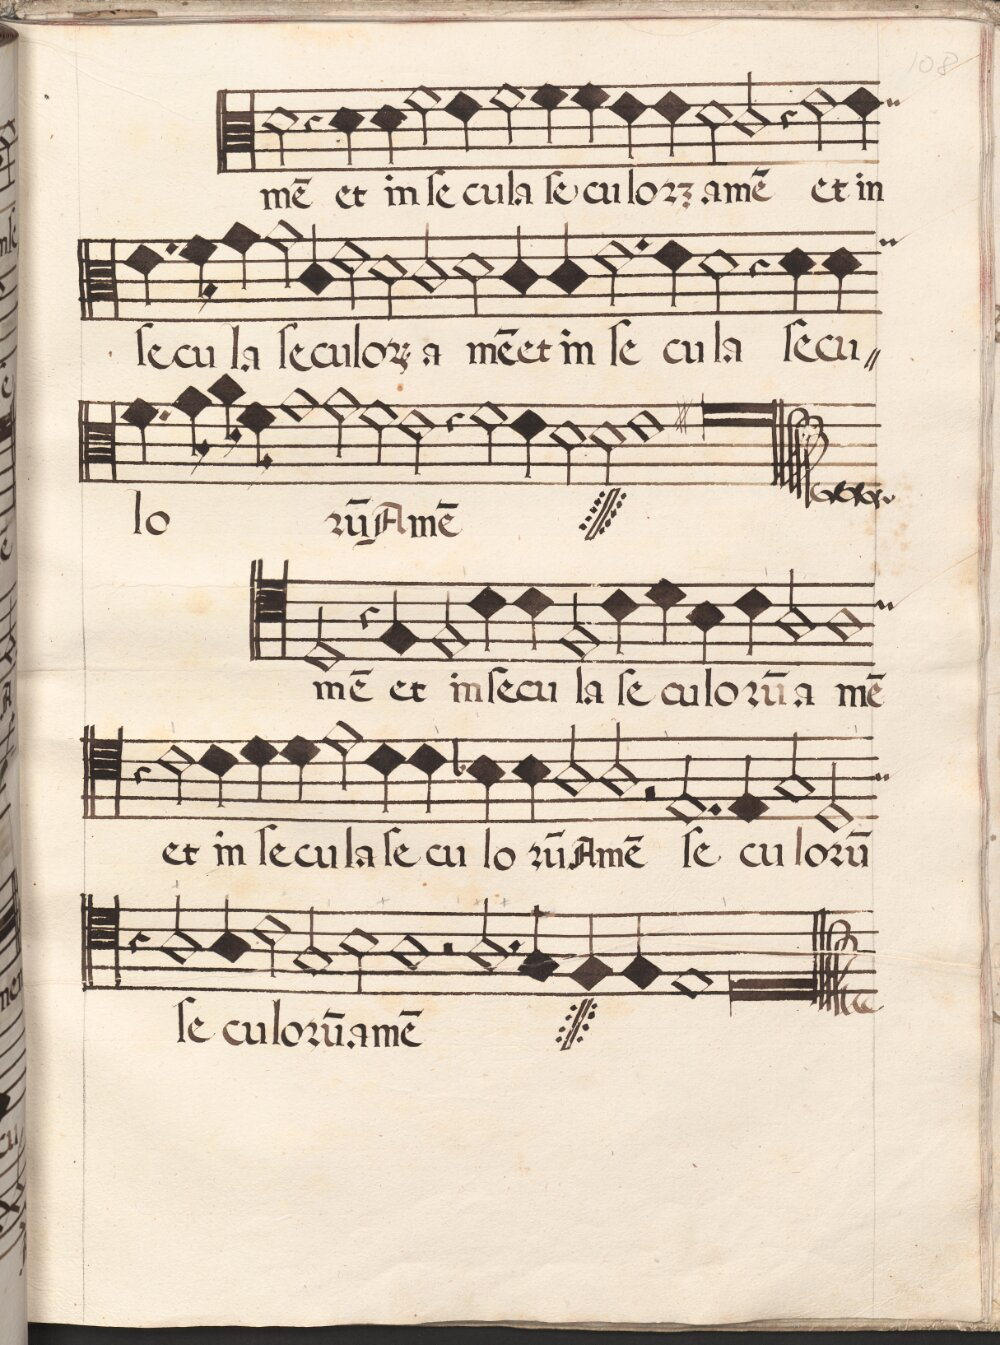 108
mē et in se cula se culorꝝ amē et in
secu la seculorꝝ a mē et in se cula secu //
lo rū Amē
mē et in secu la se culorū a mē
et in secula se cu lo rū Amē se cu lorū
se culorū amē